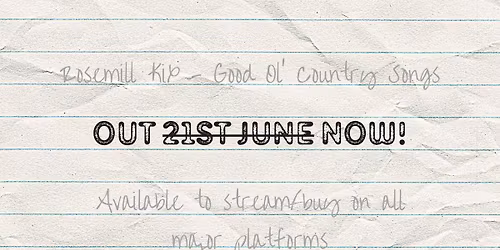 Rosemill Kix - Good Ol' Country Songs
OUT 21ST JUNE NOW!
Available to stream/buy on all
major platforms